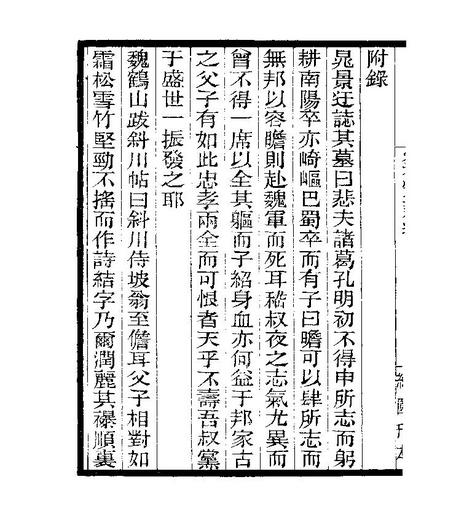 附錄
晁景迂誌其墓曰悲夫諸葛孔明初不得申所志而躬
耕南陽卒亦崎嶇巴蜀卒而有子曰瞻可以肆所志而
無邦以容瞻則赴魏軍而死耳嵇叔夜之志氣尤異而
曾不得一席以全其軀而子紹身血亦何益于邦家古
之父子有如此忠孝兩全而可恨者天乎不壽吾叔黨
于盛世一振發之耶
魏鶴山跋斜川帖曰斜川侍坡翁至儋耳父子相對如
霜松雪竹堅勁不搖而作詩結字乃爾潤麗其襮順裏